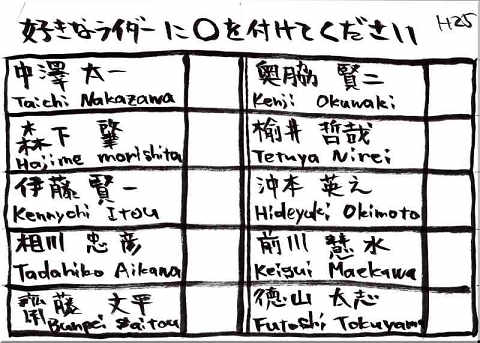 好きなライダーに○を付けてください H25
中澤 太一
Taichi Nakazawa
森下 肇
Hajime morishita
伊藤 賢一
Kennychi Itou
相川 忠彦
Tadahiko Aikawa
齋藤 文平
Bunpei Saitou
奥脇 賢二
Kenji Okuwaki
楡井 哲哉
Tetuya Nirei
沖本 英之
Hideyuki Okimoto
前川 慧水
Keisui Maekawa
徳山 太志
Futoshi Tokuyama